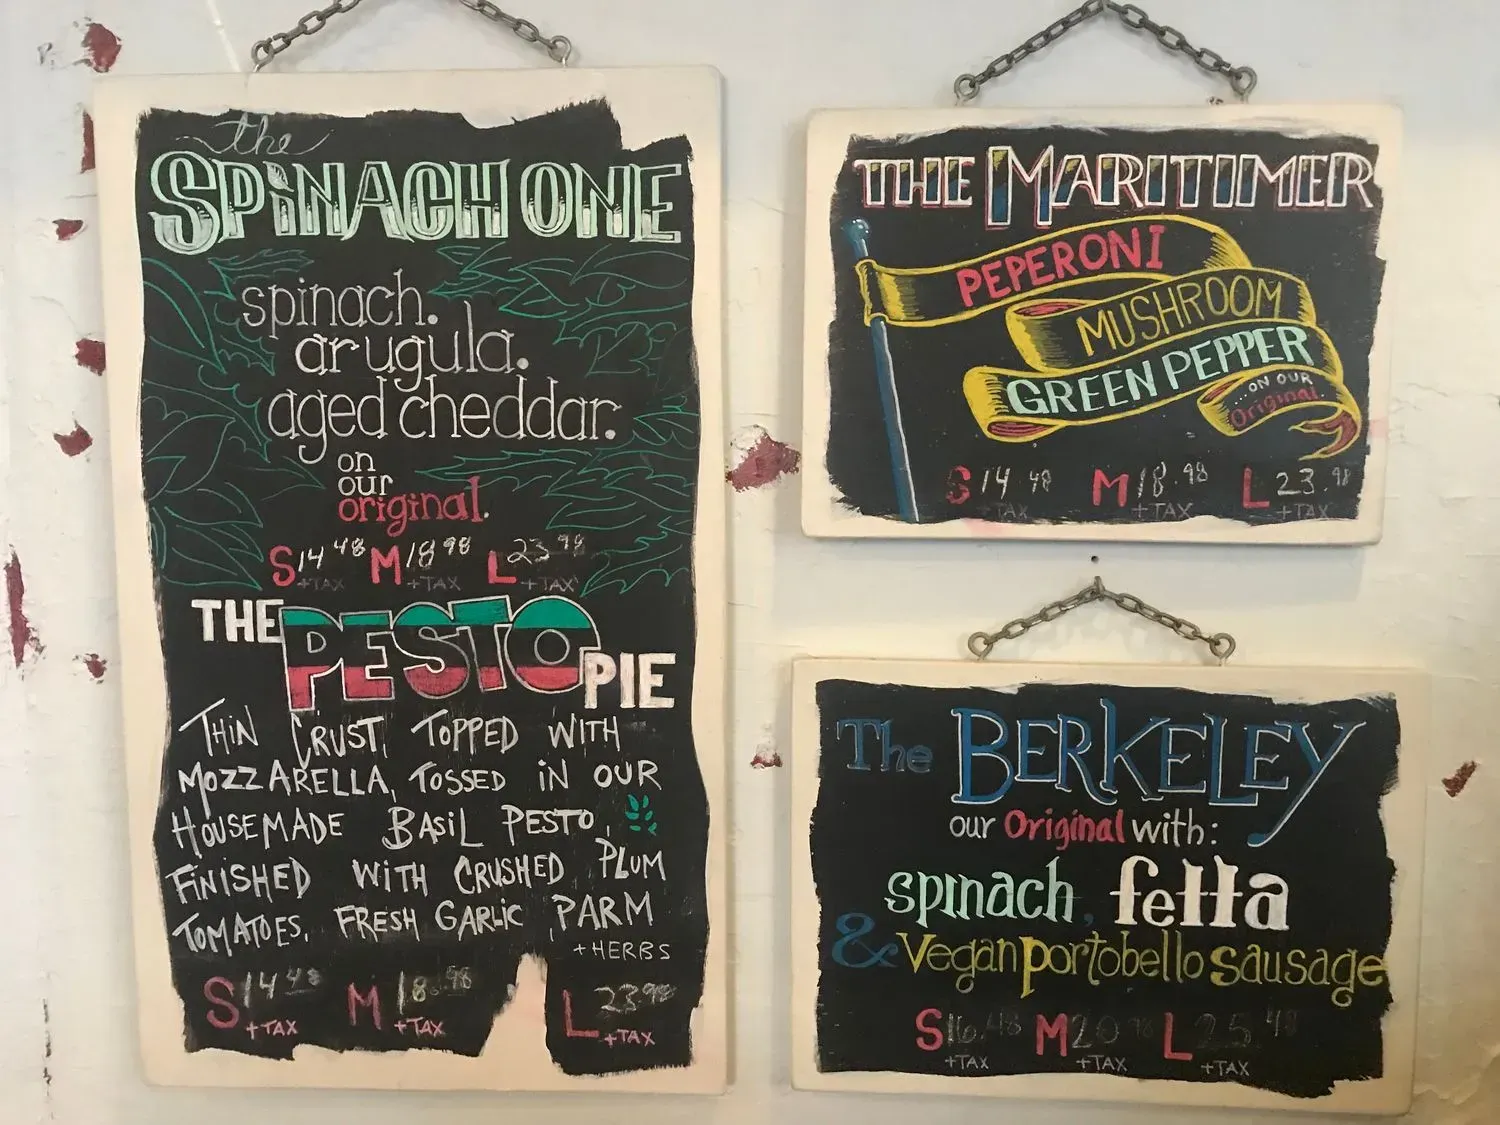 the
SPINACH ONE
spinach.
arugula.
aged cheddar.
on
our
original.
S 14 48 M 18 98 L 23 98
+TAX +TAX +TAX
THE PESTO PIE
THIN CRUST, TOPPED WITH
MOZZARELLA, TOSSED IN OUR
HOUSEMADE BASIL PESTO,
FINISHED WITH CRUSHED PLUM
TOMATOES, FRESH GARLIC, PARM
+HERBS
S 14 48 M 18.98 L 23.98
+TAX +TAX +TAX
THE MARITIMER
PEPERONI
MUSHROOM
GREEN PEPPER
ON OUR
Original
S 14 48 M 18.98 L 23.98
+TAX +TAX +TAX
The BERKELEY
our Original with:
spinach, fetta
& Vegan portobello sausage
S 16.48 M 20 98 L 25 48
+TAX +TAX +TAX